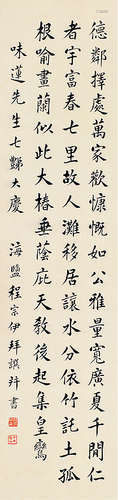 德鄰擇處萬家歡慷慨如公雅量寬廣夏千閒仁
者宇富春七里故人灘移居讓水分依竹託土孤
根喻畫蘭似此大椿垂蔭庇天教後起集皇鸞
味蓮先生七豑大慶
海鹽程宗伊拜譔并書